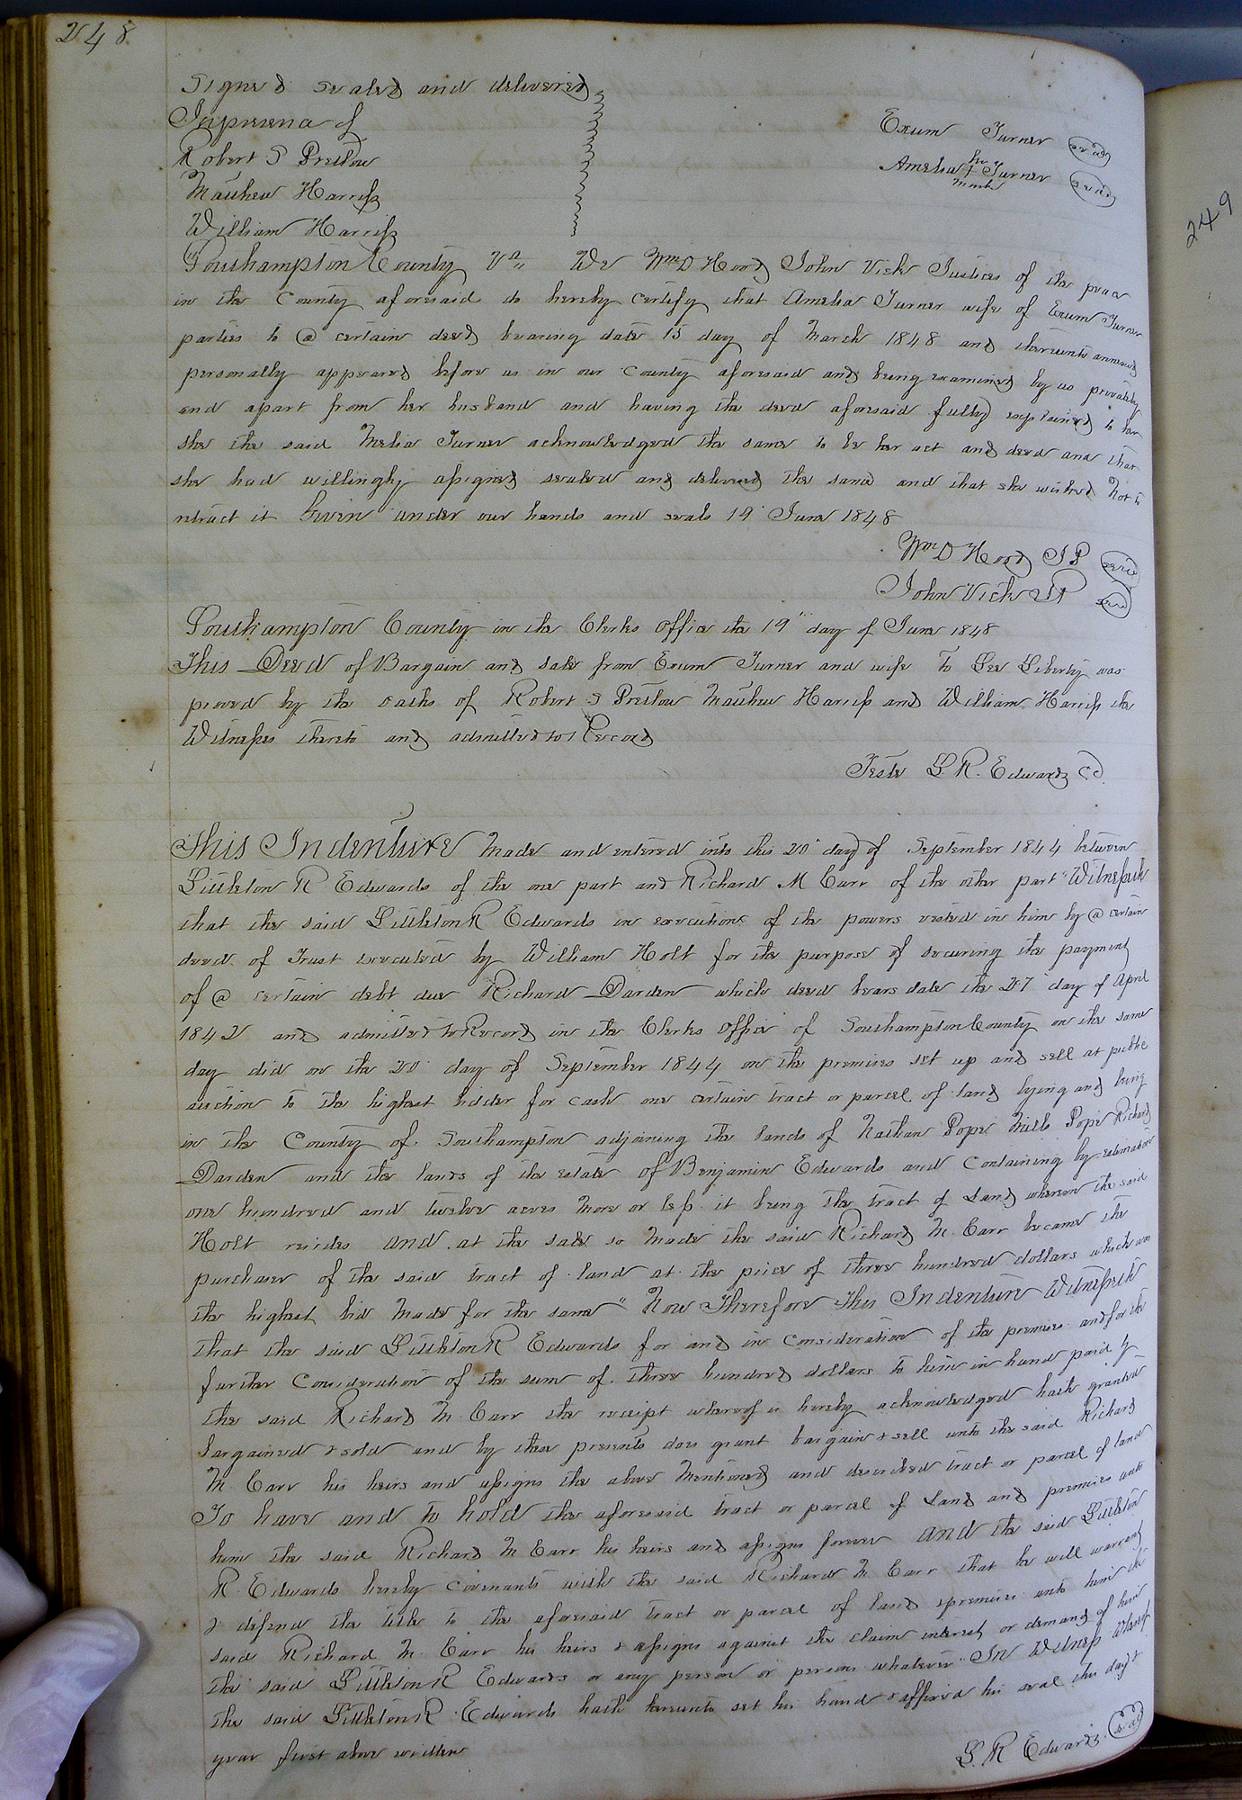 248
Signed Sealed and delivered
In presena of
Robert S Pretlow
Mathew Harriss
William Harriss
Exum Turner (seal)
her
Amelia + Turner (seal)
mark
Southampton County Va We Wm D Hood John Vick Justices of the peace
in the County aforesaid do hereby certify that Amelia Turner wife of Exum Turner
parties to @ certain deed bearing date 15 day of March 1848 and thereunto annexed
personally appeared before us in our County aforesaid and being examined by us privately
and apart from her husband and having the deed aforesaid fully explained to her
she the said Melia Turner acknowledged the same to be her act and deed and that
she had willingly assigned sealed and delivered the same and that she wished not to
retract it Given under our hands and seals 19 June 1848
Wm D Hood JP (seal)
John Vick JP (seal)
Southampton County in the Clerks Office the 19" day of June 1848
This Deed of Bargain and sale from Exum Turner and wife To Lee Liberty was
proved by the oaths of Robert S Pretlow Mathew Harriss and William Harriss the
Witnesses thereto and admitted to Record
Teste L R. Edwards CC
This Indenture Made and entered into this 20 day of September 1844 between
Littleton R Edwards of the one part and Richard M Carr of the other part "Witnesseth
that the said Littleton R Edwards in execution of the powers vested in him by @ certain
deed of Trust executed by William Holt for the purpose of securing the payment
of @ certain debt due Richard Darden which deed bears date the 27 day of April
1842 and admitted to Record in the Clerks Office of Southampton County on the same
day did on the 20 day of September 1844 on the premises set up and sell at public
auction to the highest bidder for cash one certain tract or parcel of land lying and being
in the County of Southampton adjoining the lands of Nathan Pope Mills Pope Richard
Darden and the lands of the estate of Benjamin Edwards and Containing by estimation
one hundred and twelve acres More or less it being the tract of Land whereon the said
Holt resides and at the sale so Made the said Richard M. Carr became the
purchaser of the said tract of land at the price of three hundred dollars which was
the highest bid Made for the same" Now Therefore This Indenture Witnesseth
that the said Littleton R Edwards for and in Consideration of the premises and for the
further Consideration of the sum of three hundred dollars to him in hand paid by
the said Richard M Carr the receipt whereof is hereby acknowledged hath granted
bargained & sold and by these presents does grant bargain & sell unto the said Richard
M Carr his heirs and assigns the above Mentioned and described tract or parcel of land
To have and to hold the aforesaid tract or parcel of Land and premises unto
him the said Richard M Carr his heirs and assigns forever And the said Littleton
R Edwards hereby Covenants with the said Richard M Carr that he will warrant
& defend the title to the aforesaid tract or parcel of land & premises unto him the
said Richard M. Carr his heirs & assigns against the claim interest or demand of him
the said Littleton R Edwards or any person or persons whatever" In Witness Whereof
the said Littleton R Edwards hath hereunto set his hand & affixed his seal the day &
year first above written
L. R Edwards (seal)
249